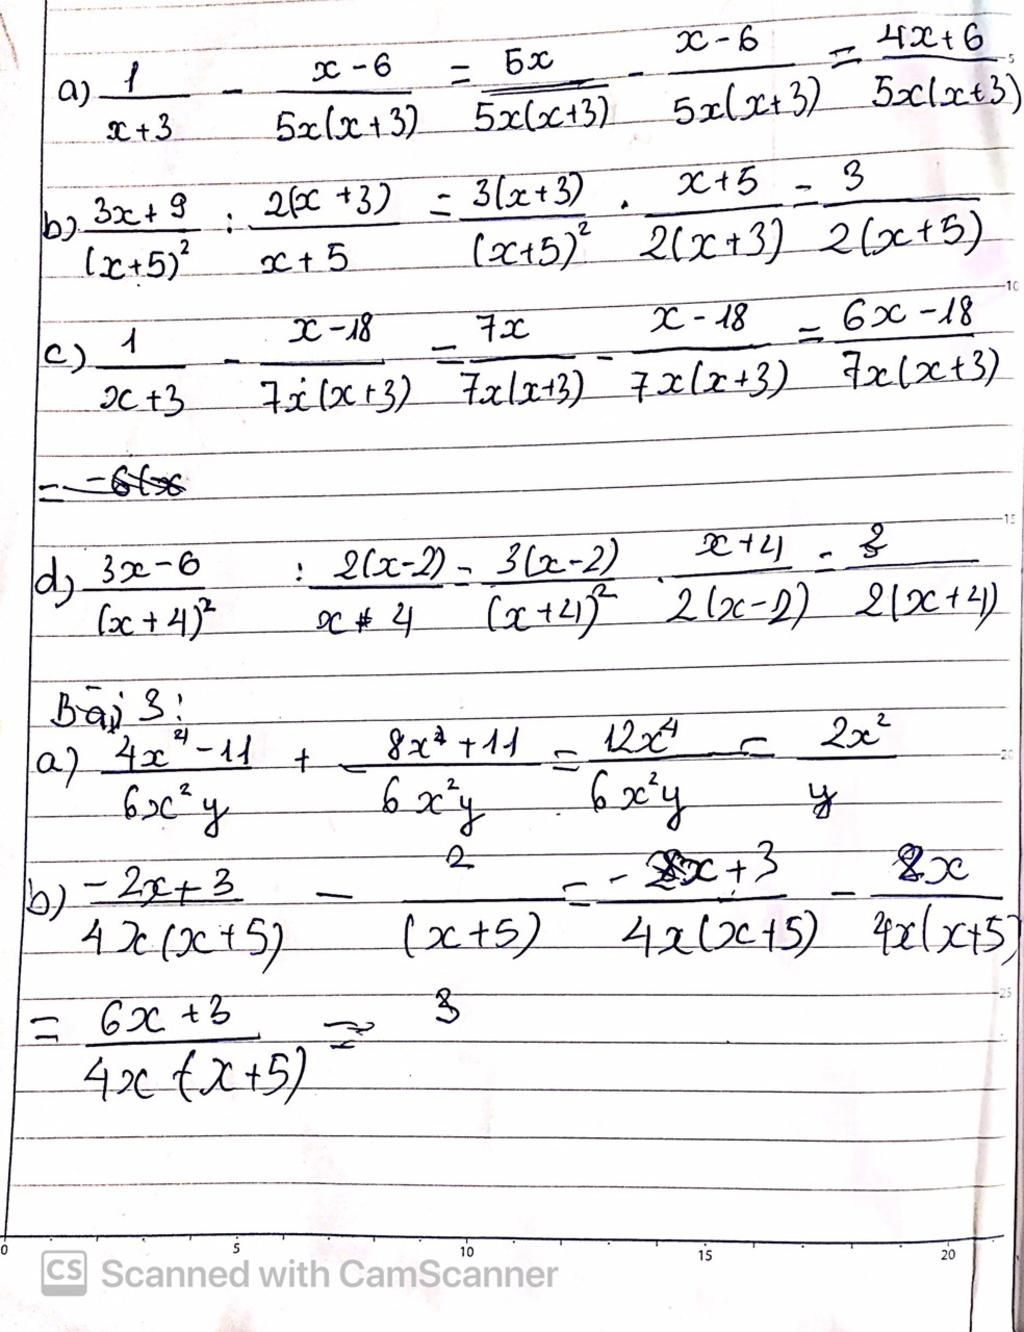 a) 1/(x+3) - (x-6)/(5x(x+3)) = 5x/(5x(x+3)) - (x-6)/(5x(x+3)) = (4x+6)/(5x(x+3))
b) (3x+9)/(x+5)² : 2(x+3)/(x+5) = 3(x+3)/(x+5)² . (x+5)/(2(x+3)) = 3/(2(x+5))
c) 1/(x+3) - (x-18)/(7x(x+3)) = 7x/(7x(x+3)) - (x-18)/(7x(x+3)) = (6x-18)/(7x(x+3))
d) (3x-6)/(x+4)² : 2(x-2)/(x+4) = 3(x-2)/(x+4)² . (x+4)/(2(x-2)) = 3/(2(x+4))
Bài 3:
a) (4x⁴-11)/(6x²y) + (8x⁴+11)/(6x²y) = 12x⁴/(6x²y) = 2x²/y
b) (-2x+3)/(4x(x+5)) - 2/(x+5) = (-2x+3)/(4x(x+5)) - 8x/(4x(x+5))
= (6x+3)/(4x(x+5)) = 3
5
10
15
20
25
0 5 10 15 20
CS Scanned with CamScanner